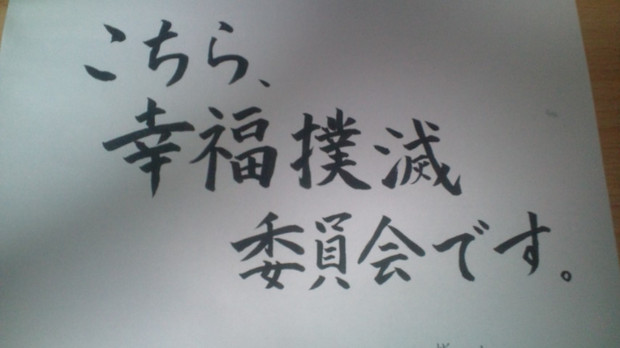 こちら、
幸福撲滅
委員会です。